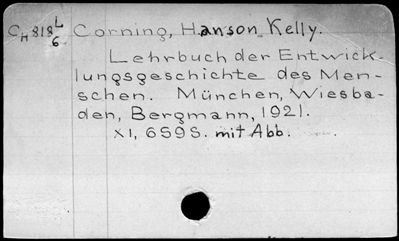 CH818L6 Corning, Hanson Kelly.
Lehrbuch der Entwick-
lungsgeschichte des Men-
schen. München, Wiesba-
den, Bergmann, 1921.
XI, 659 S. mit Abb.